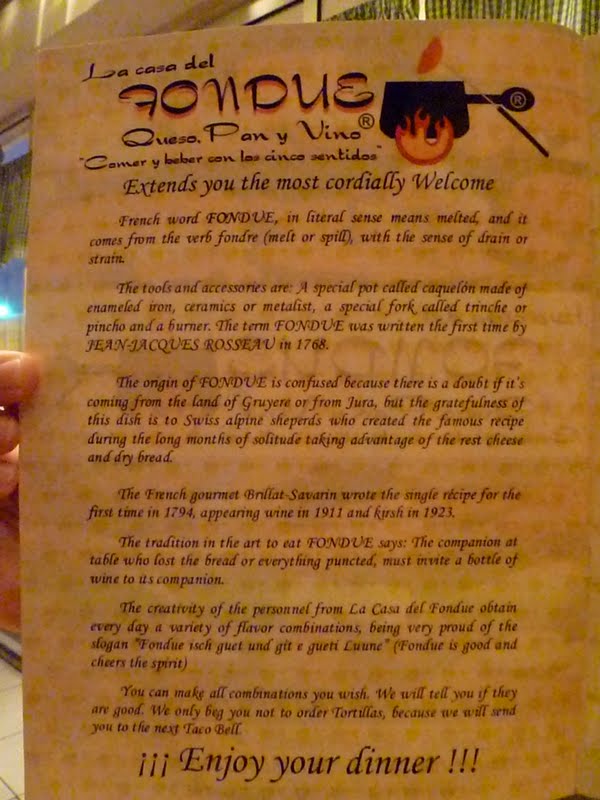 La casa del
FONDUE
Queso, Pan y Vino®
®
"Comer y beber con los cinco sentidos"
Extends you the most cordially Welcome
French word FONDUE, in literal sense means melted, and it
comes from the verb fondre (melt or spill), with the sense of drain or
strain.
The tools and accessories are: A special pot called caquelón made of
enameled iron, ceramics or metalist, a special fork called trinche or
pincho and a burner. The term FONDUE was written the first time by
JEAN-JACQUES ROSSEAU in 1768.
The origin of FONDUE is confused because there is a doubt if it's
coming from the land of Gruyere or from Jura, but the gratefulness of
this dish is to Swiss alpine sheperds who created the famous recipe
during the long months of solitude taking advantage of the rest cheese
and dry bread.
The French gourmet Brillat-Savarin wrote the single récipe for the
first time in 1794, appearing wine in 1911 and kirsh in 1923.
The tradition in the art to eat FONDUE says: The companion at
table who lost the bread or everything puncted, must invite a bottle of
wine to its companion.
The creativity of the personnel from La Casa del Fondue obtain
every day a variety of flavor combinations, being very proud of the
slogan "Fondue isch guet und git e gueti Luune" (Fondue is good and
cheers the spirit)
You can make all combinations you wish. We will tell you if they
are good. We only beg you not to order Tortillas, because we will send
you to the next Taco Bell.
¡¡¡ Enjoy your dinner !!!